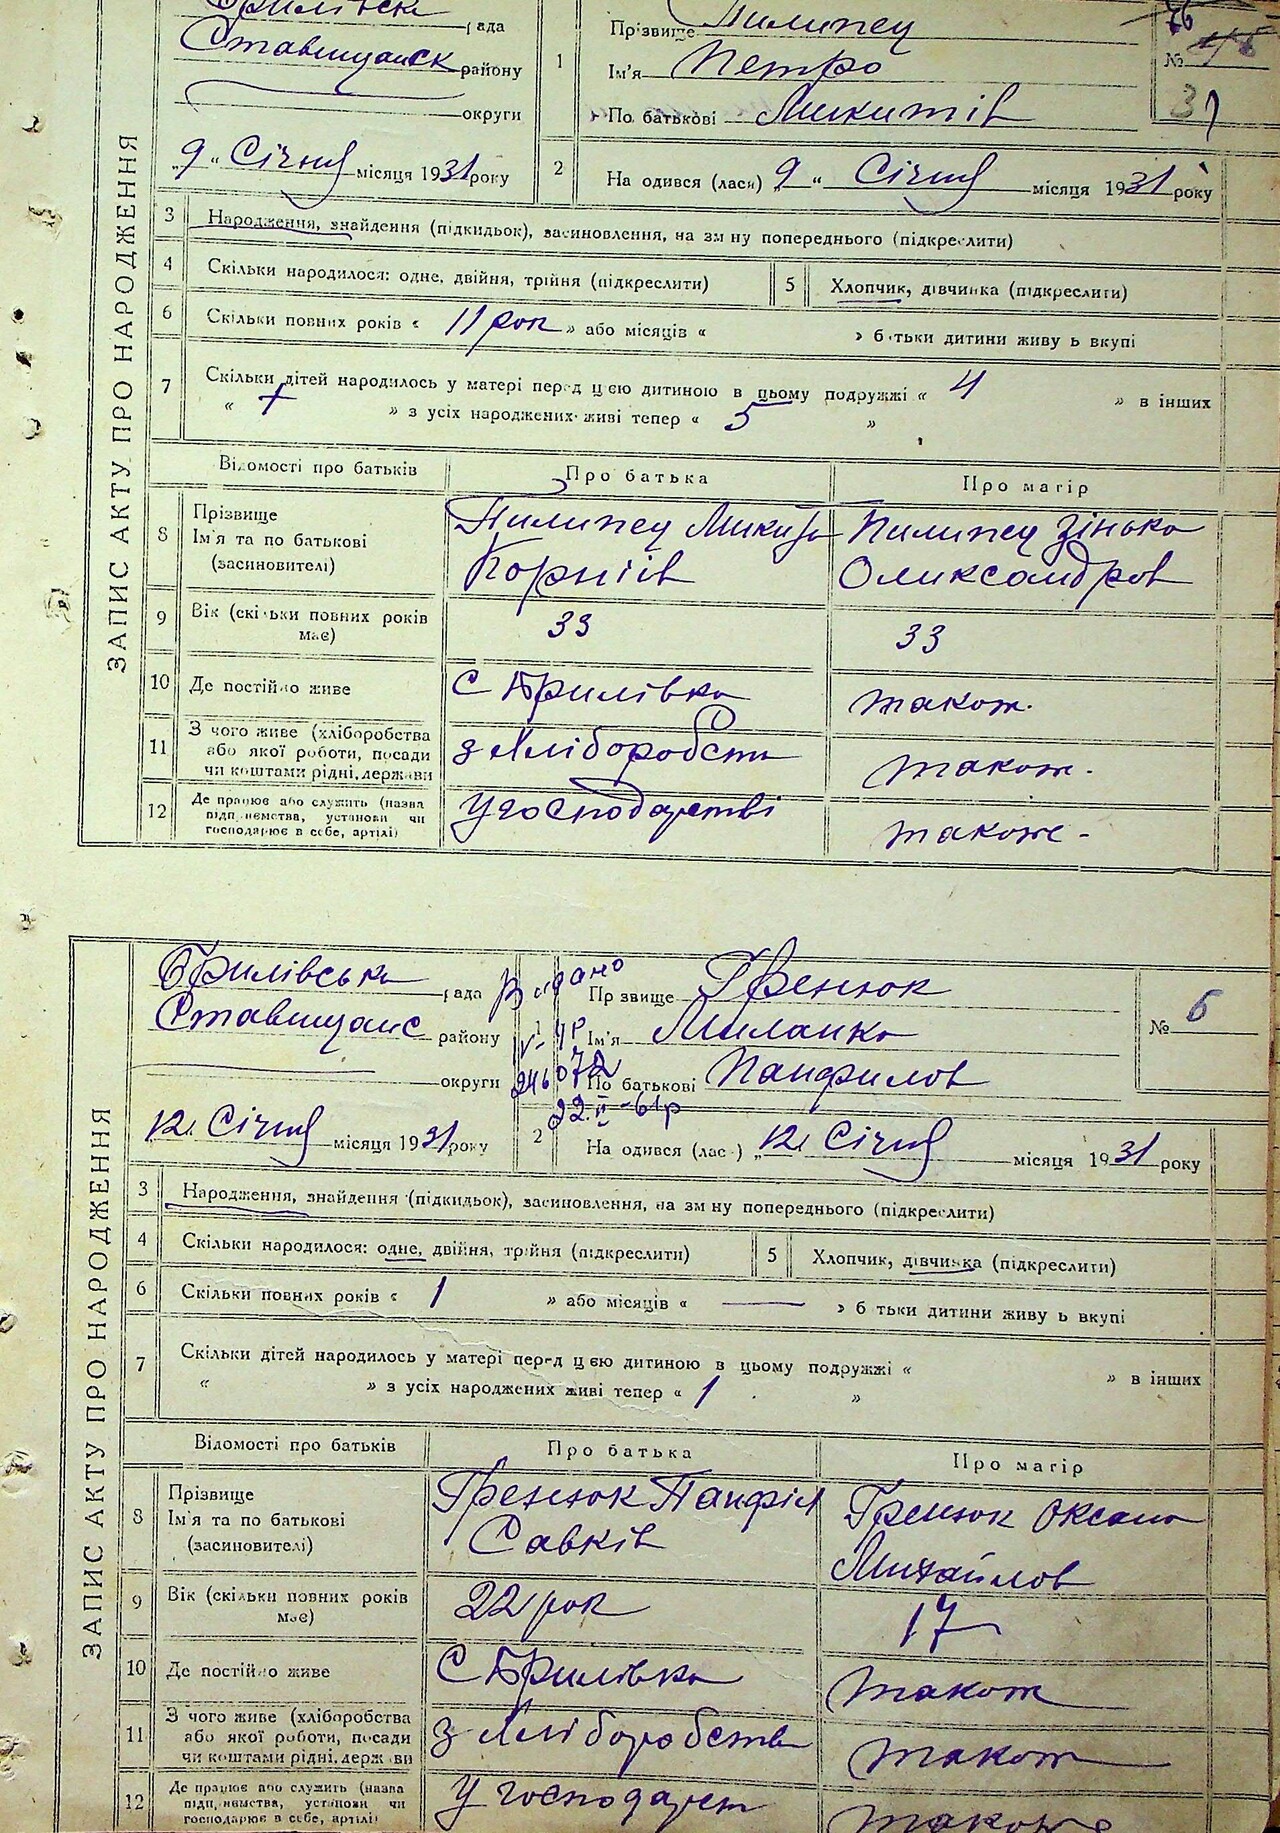 рада
Ставищанск району
округи
"9" Січня місяця 1931 року
1
Прізвище Пилипец
Ім'я Петро
По батькові Микитів
76
№
31
2
На одився (лась) "9" Січня місяця 1931 року
ЗАПИС АКТУ ПРО НАРОДЖЕННЯ
3 Народження, знайдення (підкидьок), засиновлення, на зм ну попереднього (підкреслити)
4 Скільки народилося: одне, двійня, трійня (підкреслити)
5 Хлопчик, дівчинка (підкреслити)
6 Скільки повних років « 11 рок » або місяців « » б тьки дитини живу ь вкупі
7 Скільки дітей народилось у матері перед цією дитиною в цьому подружжі « 4 » в інших
« » з усіх народжених живі тепер « 5 »
Відомості про батьків
Про батька
Про матір
8 Прізвище
Ім'я та по батькові
(засиновителі)
Пилипец Микита
Корніїв
Пилипец Зінька
Олександров
9 Вік (скільки повних років
має)
33
33
10 Де постійно живе
С Брилівка
також.
11 З чого живе (хліборобства
або якої роботи, посади
чи коштами рідні, держави
з Хліборобств
також.
12 Де працює або служить (назва
підп иємства, установи чи
господарює в себе, артілі)
У господарстві
також.
Брилівська рада
Ставищанс району
округи
12 Січня місяця 1931 року
Видано
22.II-61р
Пр звище Гренюк
Ім'я Миланка
По батькові Панфилов
№ 6
2
На одився (лас ) "12 Січня місяця 1931 року
ЗАПИС АКТУ ПРО НАРОДЖЕННЯ
3 Народження, знайдення (підкидьок), засиновлення, на зм ну попереднього (підкреслити)
4 Скільки народилося: одне, двійня, трійня (підкреслити)
5 Хлопчик, дівчинка (підкреслити)
6 Скільки повних років « 1 » або місяців « — » б тьки дитини живу ь вкупі
7 Скільки дітей народилось у матері перед цією дитиною в цьому подружжі « » в інших
« » з усіх народжених живі тепер « 1 »
Відомості про батьків
Про батька
Про матір
8 Прізвище
Ім'я та по батькові
(засиновителі)
Гренюк Панфіл
Савків
Гренюк Оксана
Михайлов
9 Вік (скільки повних років
має)
22 рок
17
10 Де постійно живе
С Брилівка
також
11 З чого живе (хліборобства
або якої роботи, посади
чи коштами рідні, держ ви
з Хліборобств
також
12 Де працює або служить (назва
підп, иємства, установи чи
господарює в себе, артілі)
У господарст
також